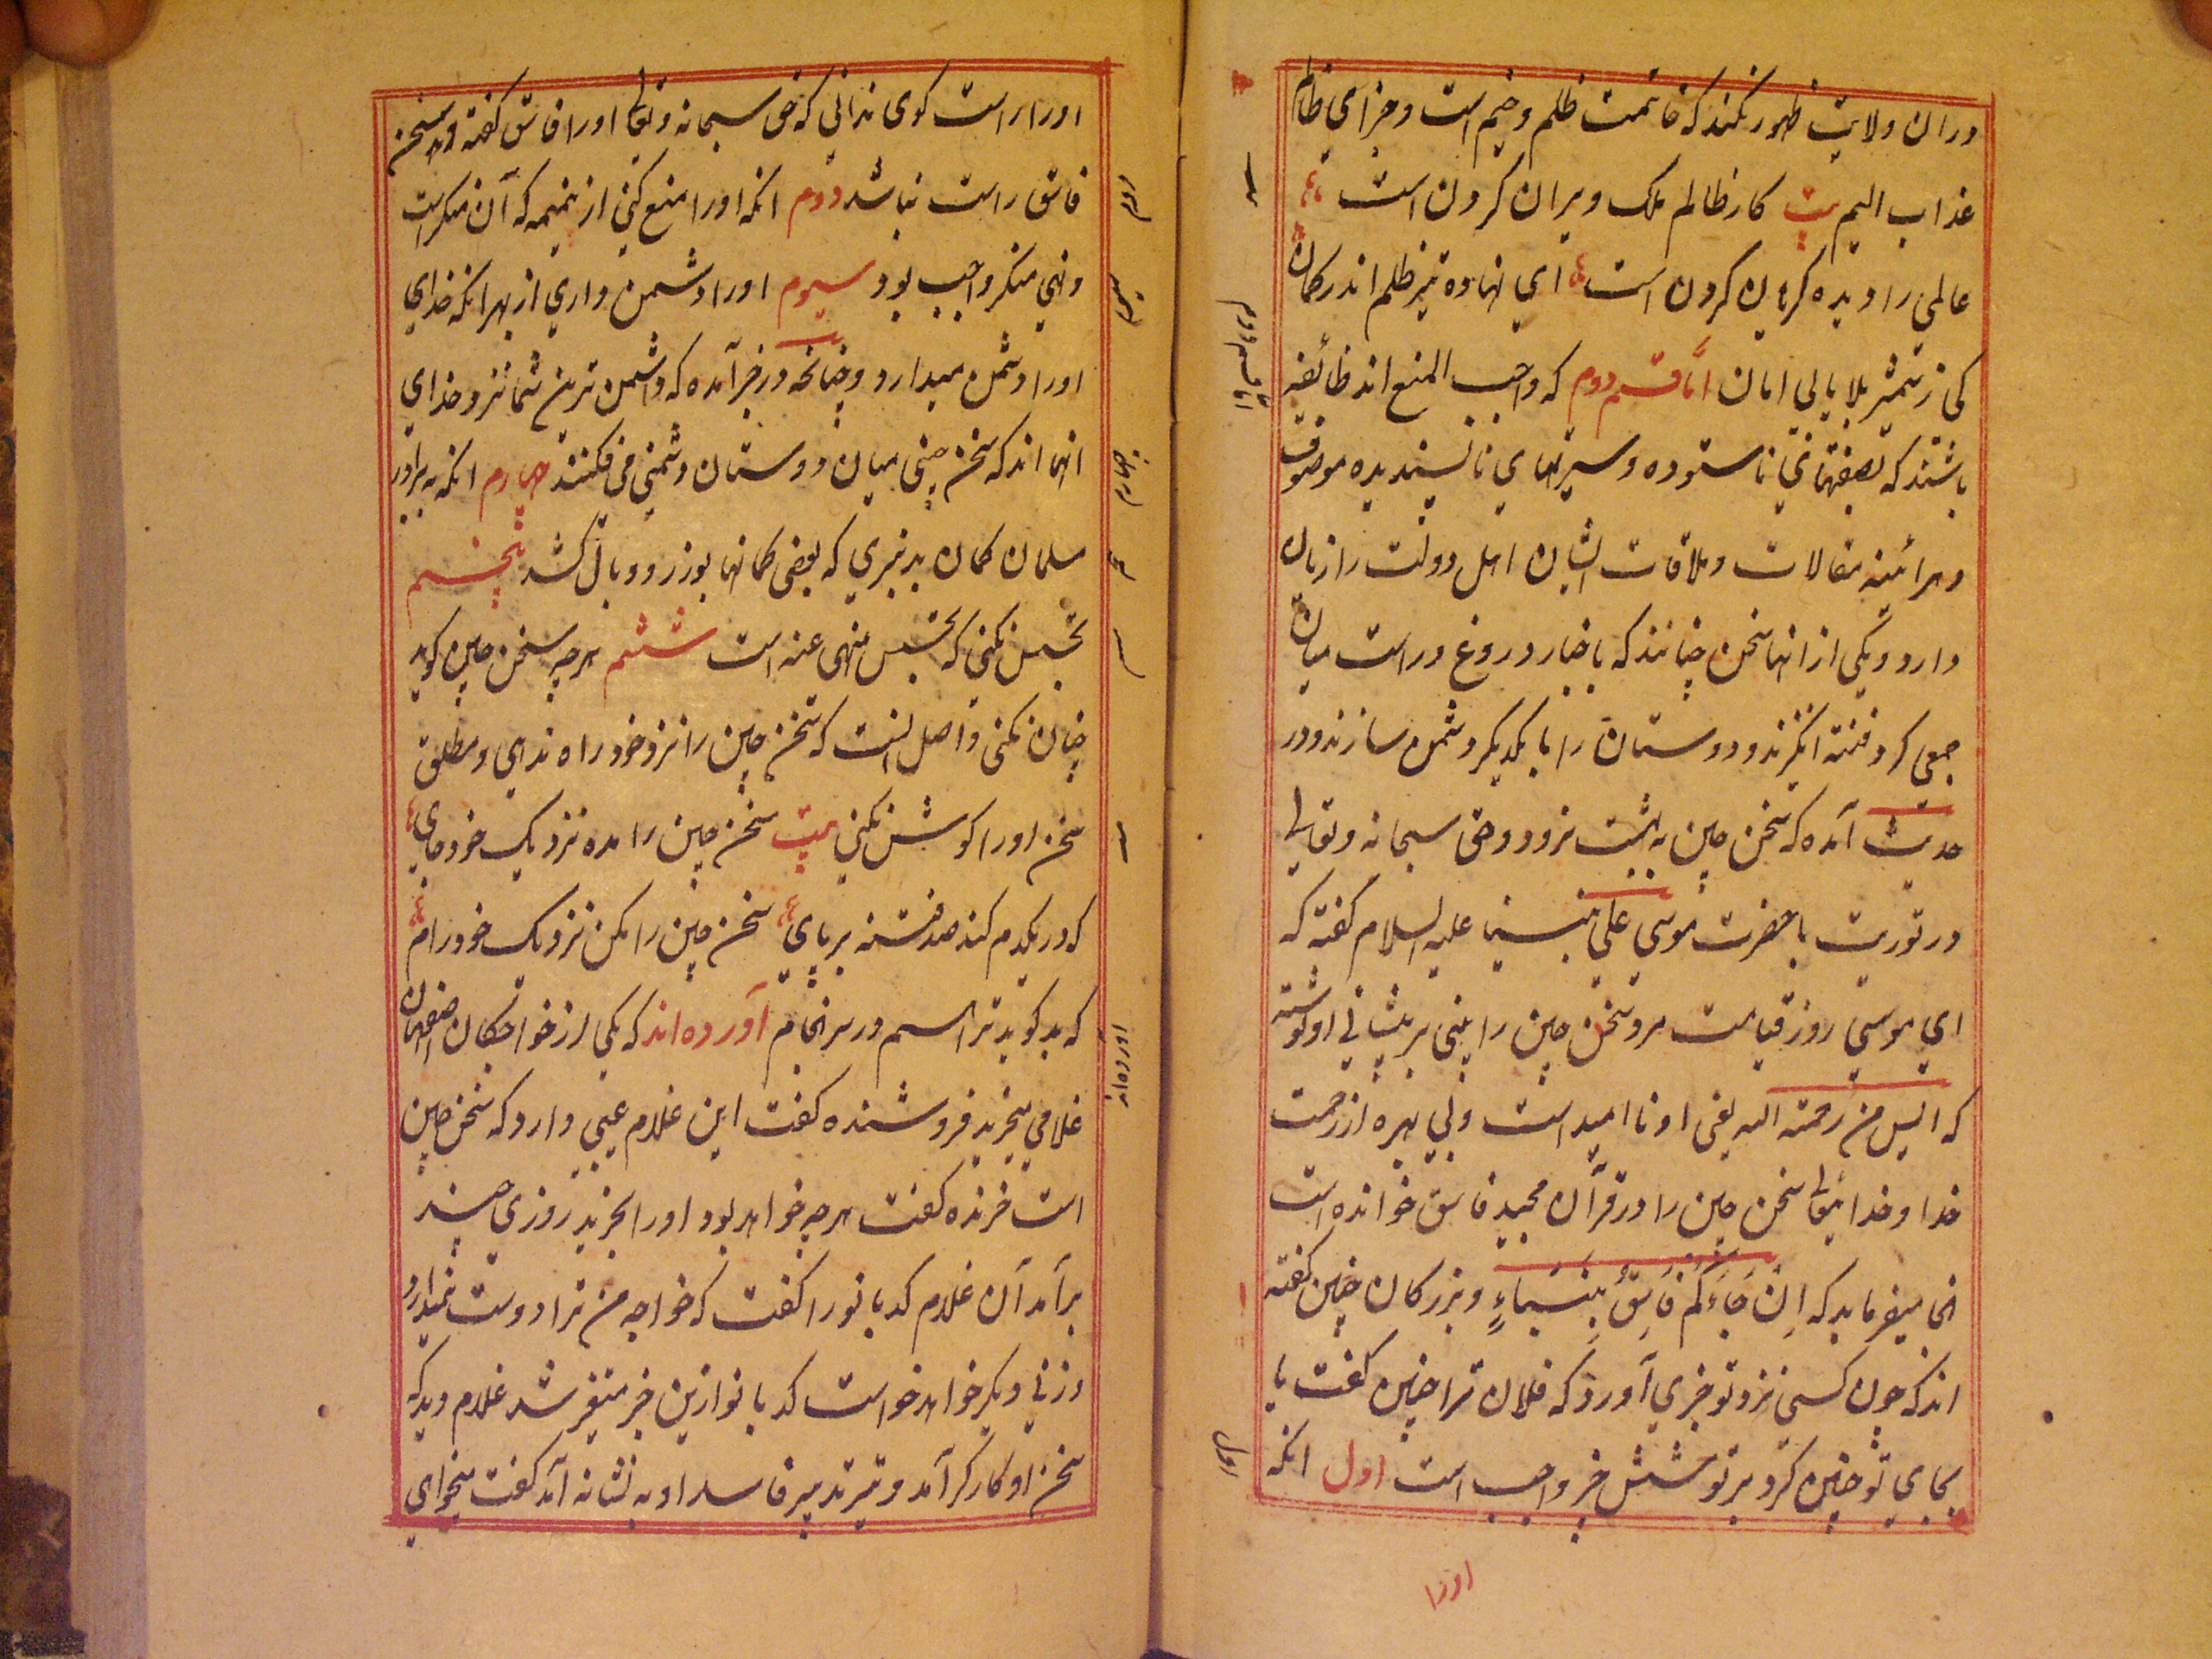 دران ولایت ظهور نکند که خاتمت ظلم وخیم است و جزای ظالم
عذاب الیم بیت کار ظالم ملک ویران کردن است
عالمی را دیده گریان کردن است ای نهاده تیر ظلم اندر کمان
کی ز شمشیر بلا یابی امان اما قسم دوم که واجب المنع اند طائفه
باشند که بصفتهای ناستوده و سیرتهای ناپسندیده موصوف
و هر آئینه مقالات و ملاقات ایشان اهل دولت را زیان
دارد و یکی از انها سخن چینانند که باخبار دروغ و راست میان
جمعی گرد فتنه انگیزند و دوستان را با یکدیگر دشمن سازند و در
حدیث آمده که سخن چین به بهشت نرود و حق سبحانه و تعالی
در توریت با حضرت موسی علی نبینا علیه السلام گفته که
ای موسی روز قیامت مرد سخن چین را بینی بر پیشانی او نوشته
که ایس من رحمة الله یعنی او ناامید است و بی بهره از رحمت
خدا و خدایتعالی سخن چین را در قرآن مجید فاسق خوانده است
انجا میفرماید که اِن جَاءَکُم فَاسِقٌ بِنَبَاءٍ و بزرگان چنین گفته
اند که چون کسی نزد تو خبری آورد که فلان ترا چنین گفت یا
بجای تو چنین کرد بر تو شش خبر واجب است اول انکه
اورا
اورا راست گوی ندانی که حق سبحانه و تعالی اورا فاسق گفته و سخن
فاسق راست نباشد دوم انکه اورا منع کنی از نمیمه که آن منکر است
و نهی منکر واجب بود سیوم اورا دشمن داری از بهر انکه خدای
اورا دشمن میدارد و چنانچه در خبر آمده که دشمن ترین شما نزد خدای
انها اند که سخن چینی میان دوستان دشمنی می فکنند چهارم انکه به برادر
مسلمان گمان بد نبری که بعضی گمانها بوزر و وبال کشد پنجم
تجسس نکنی که تجسس منهی عنه است ششم هرچه سخن چین گوید
چنان نکنی و اصل انست که سخن چین را نزد خود راه ندهی و مطلق
سخن اورا گوش نکنی بیت سخن چین را مده نزدیک خود جای
که در یکدم کند صد فتنه بر پای سخن چین را مکن نزدیک خود رام
که بد گوید ترا هم در سرانجام آورده اند که یکی از خواجگان اصفهان
غلامی میخرید فروشنده گفت این غلام عیبی دارد که سخن چین
است خرنده گفت هرچه خواهد بود اورا بخرید روزی چند
برآمد آن غلام کدبانو را گفت که خواجه من ترا دوست نمیدارد
و زنی دیگر خواهد خواست کدبانو ازین خبر متغیر شد غلام دید که
سخن او کارگر آمد و تیر تدبیر فاسد او به نشانه آمد گفت میخواهی